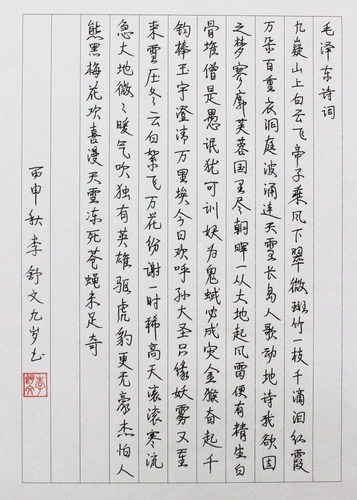 毛泽东诗词
九嶷山上白云飞帝子乘风下翠微斑竹一枝千滴泪红霞
万朵百重衣洞庭波涌连天雪长岛人歌动地诗我欲因
之梦寥廓芙蓉国里尽朝晖一从大地起风雷便有精生白
骨堆僧是愚氓犹可训妖为鬼蜮必成灾金猴奋起千
钧棒玉宇澄清万里埃今日欢呼孙大圣只缘妖雾又重
来雪压冬云白絮飞万花纷谢一时稀高天滚滚寒流
急大地微々暖气吹独有英雄驱虎豹更无豪杰怕人
熊罴梅花欢喜漫天雪冻死苍蝇未足奇
丙申秋李舒文九岁书
李舒文